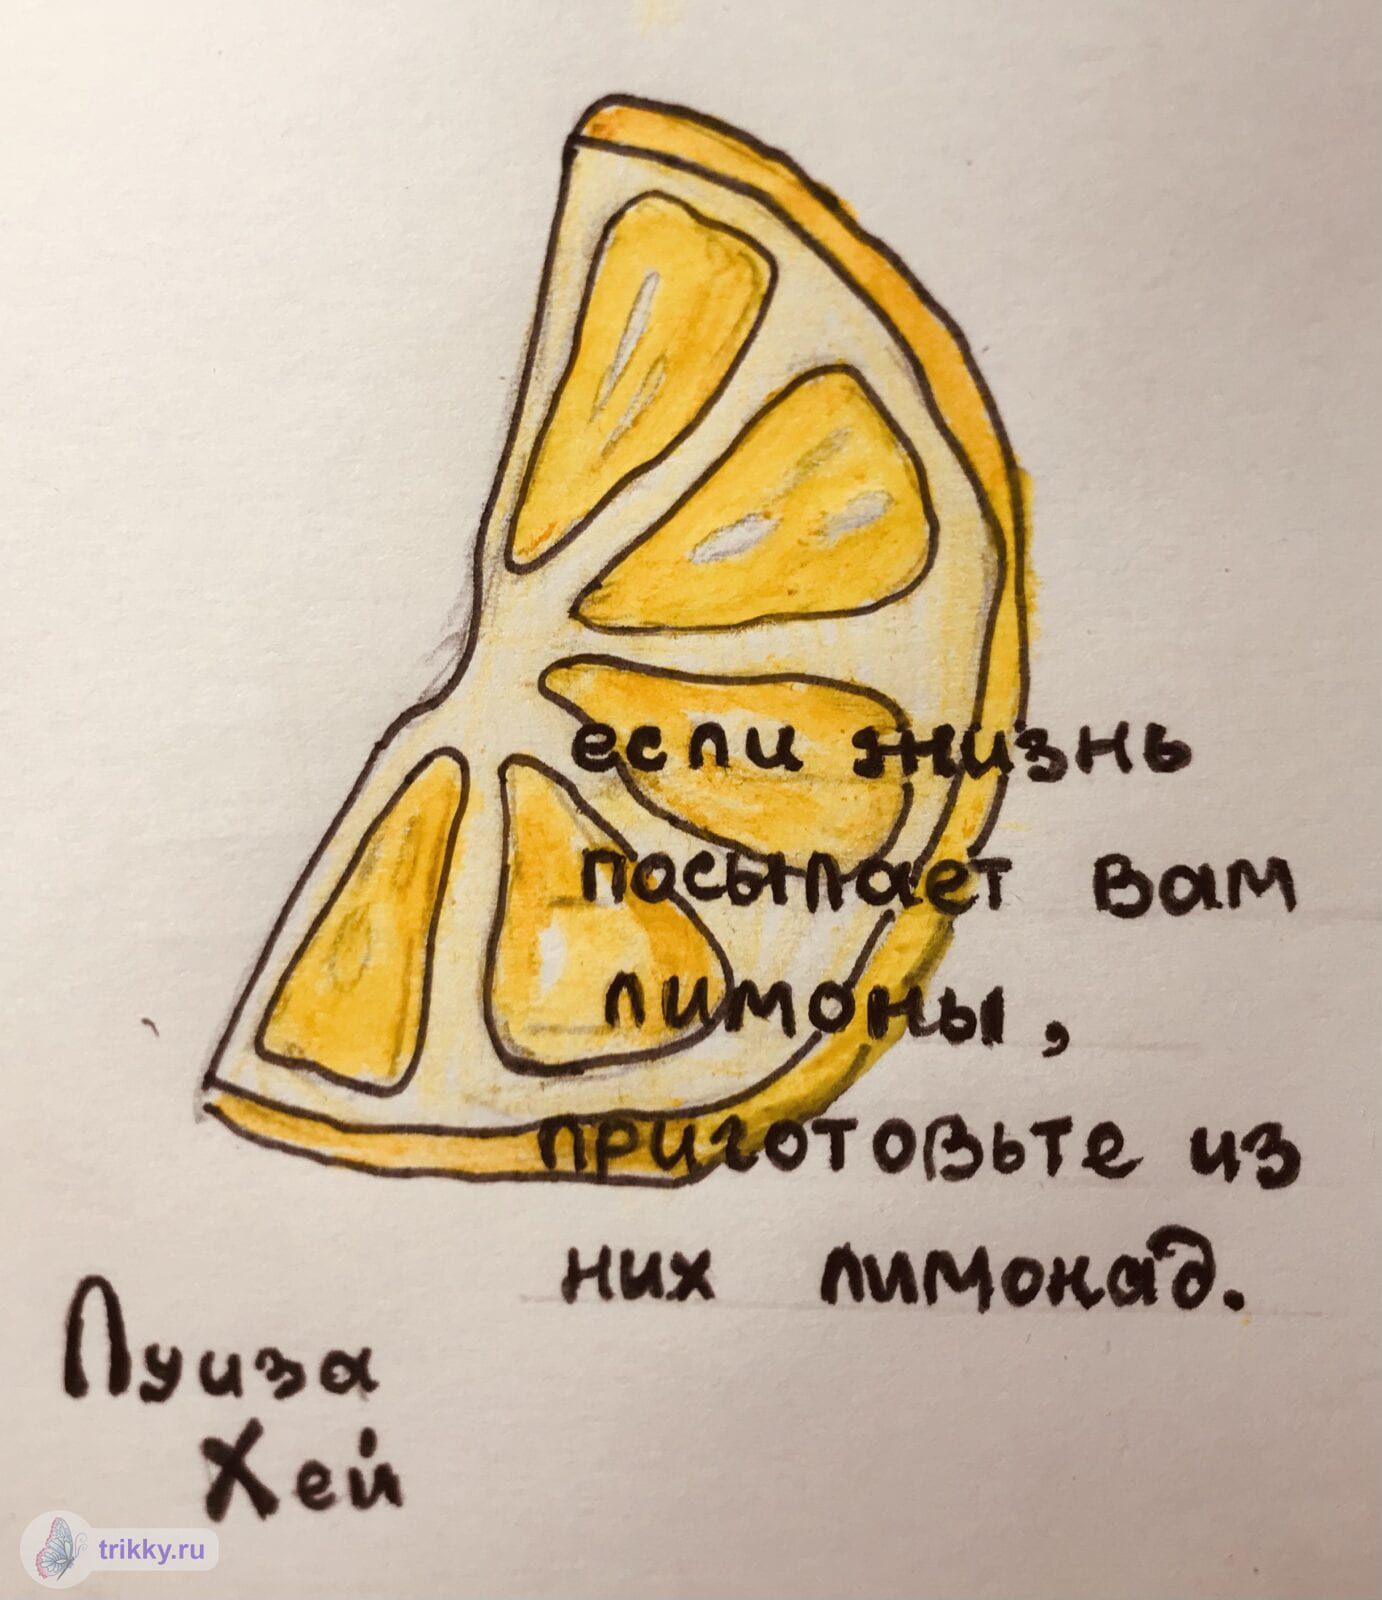 если жизнь
посылает вам
лимоны,
приготовьте из
них лимонад.
Луиза
Хей
trikky.ru